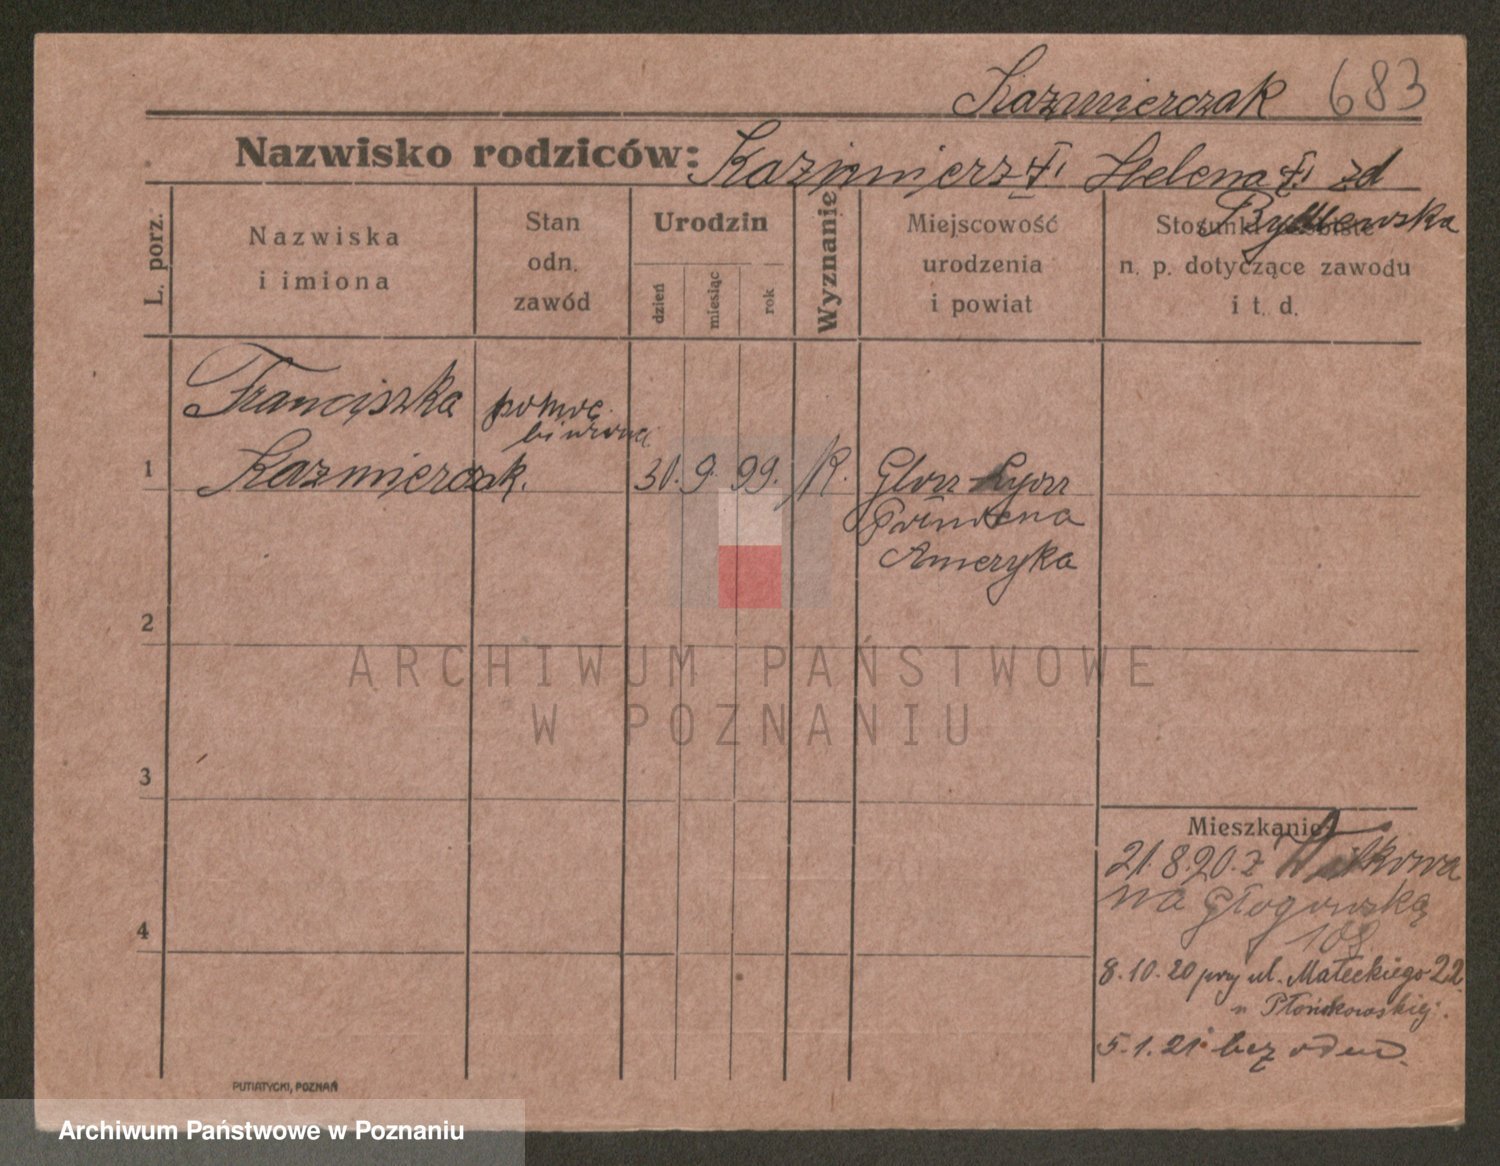 Kazmierczak 683
Nazwisko rodziców: Kazimierz †. Helena †. zd
L. porz.
Nazwiska
i imiona
Stan
odn.
zawód
Urodzin
dzień
miesiąc
rok
Wyznanie
Miejscowość
urodzenia
i powiat
Stosunki osobiste
n. p. dotyczące zawodu
i t. d.
Franciszka
pomoc
biurowa
1 Kazmierczak. 30. 9. 99. K.
Ameryka
2
ARCHIWUM PAŃSTWOWE
W POZNANIU
3
Mieszkanie
21.8.20. z
na Głogowską
108
4
8.10.20 przy ul. Małeckiego 22
5.1.21 bez odm.
PUTIATYCKI, POZNAŃ
Archiwum Państwowe w Poznaniu